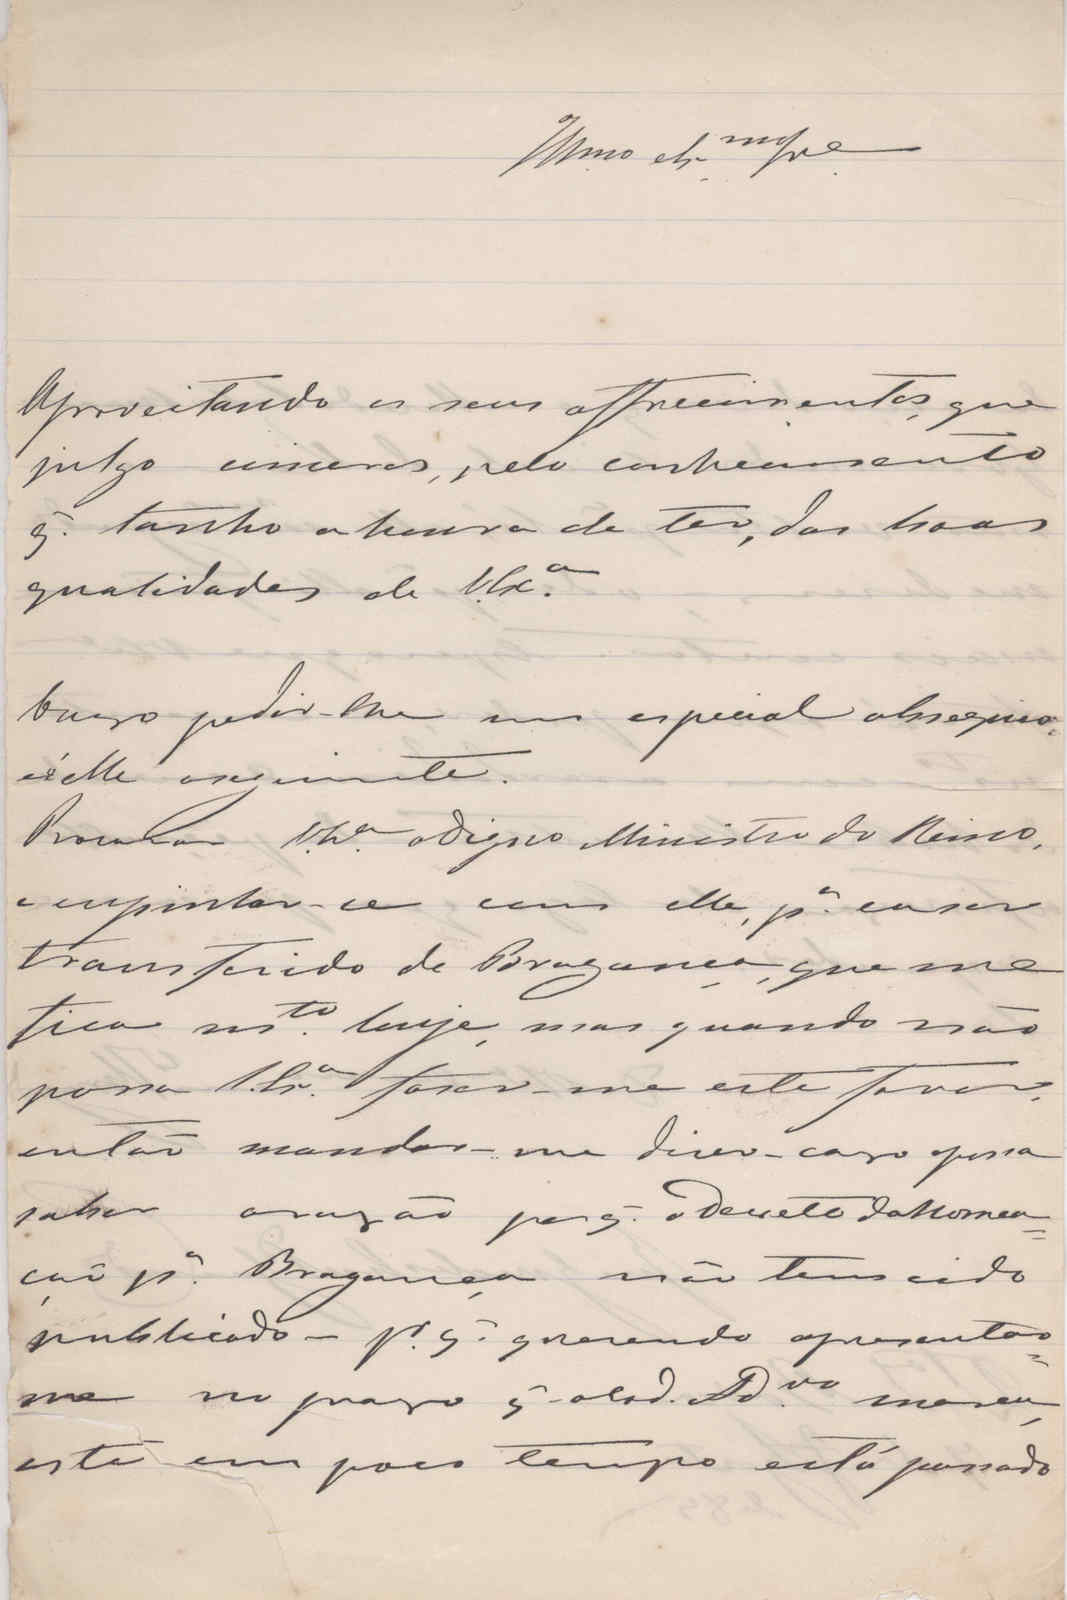 Illmo Ex.mo Snr.
Aproveitando os seus offrecimentos, que
julgo cinceros, pelo conhecimento
q. tenho a honra de ter, das boas
qualidades de V. Ex.a
Ouzo pedir-lhe um especial obsequio,
é elle o seguinte.
Procurar V. Ex.a o Digno Ministro do Reino,
e empinhar-ce com elle, p.a eu ser
transferido de Bragança, que me
fica m.to longe, mas quando não
possa V. Ex.a fazer-me este favor,
então mandar-me dizer-cazo possa
saber a razão porq. o Decreto da Nomea=
ção p.a Bragança não tem cido
publicado - p.r q. querendo apresentar=
me no prazo q. o Cod. Ad.vo marca,
este em poco tempo está passado